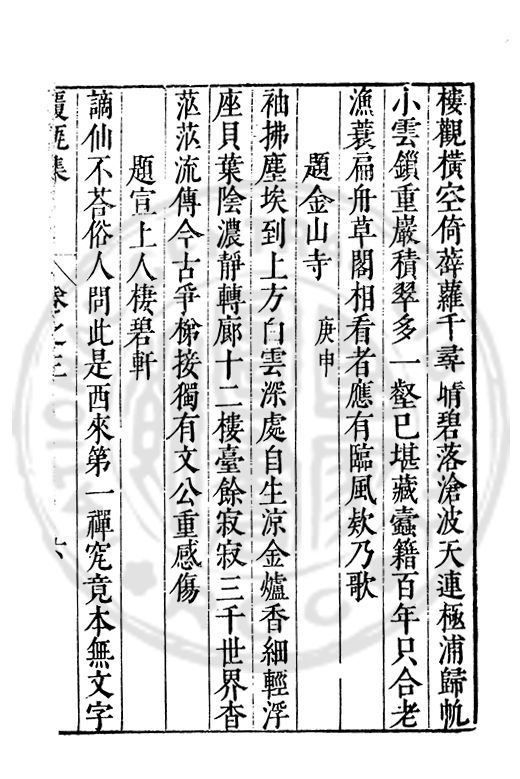 樓觀橫空倚薜蘿千尋晴碧落滄波天連極浦歸帆
小雲鎖重巖積翠多一壑已堪藏蠹籍百年只合老
漁蓑扁舟草閣相看者應有臨風欸乃歌
題金山寺 庚申
袖拂塵埃到上方白雲深處自生涼金爐香細輕浮
座貝葉陰濃靜轉廊十二樓臺餘寂寂三千世界杳
茫茫流傳今古爭梯接獨有文公重感傷
題宣上人棲碧軒
謫仙不荅俗人問此是西來第一禪究竟本無文字
覆瓿集 卷之三 六